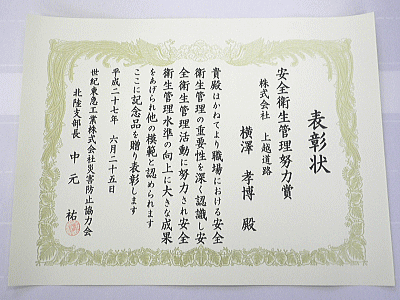 表彰状
安全衛生管理努力賞
株式会社 上越道路
横澤 孝博 殿
貴殿はかねてより職場における安全
衛生管理の重要性を深く認識し安
全衛生管理活動に努力され安全
衛生管理水準の向上に大きな成果
をあげられ他の模範と認められます
ここに記念品を贈り表彰します
平成二十七年 六月二十五日
世紀東急工業株式会社災害防止協力会
北陸支部長 中元 祐